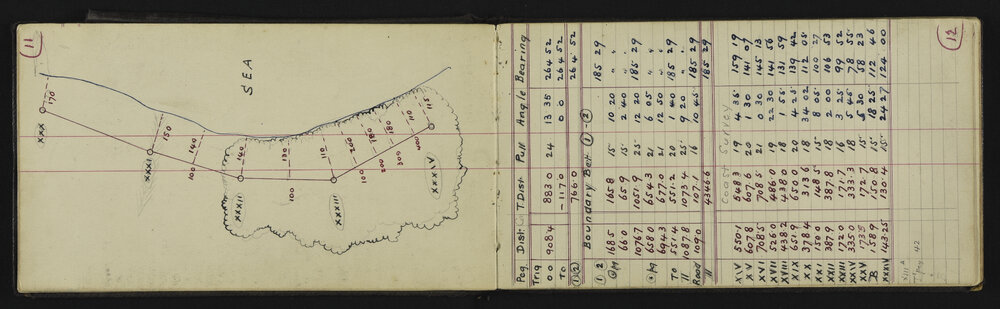 11
SEA
170
XXX
150
140
XXXI
100
140
130
110
200
180
180
110
115
XXXII
100
XXXIII
100
200
300
400
XXXIV
12
Peg. Dist. T.Dist Pull Angle Bearing
Trig
00 908.4 883.0 24 13 35 264 52
To -117.0 0 0 264 52
①② 766.0 264 52
Boundary Bet. ①-②
① 2 185 29
GM 168.5 165.8 15 10 20 "
66.0 65.9 15 2 40 "
1076.7 1051.9 25 12 20 185 29
GM 658.0 654.3 21 6 05 "
694.3 677.0 21 12 20 "
To 551.4 20 1 40 185 29
11 1087.8 1073.4 25 9 20 "
Road 109.0 107.1 16 10 45 185 29
11 4346.6 185 29
Coast Survey
XIV 550.1 548.3 19 4 35 159 19
XV 607.8 607.6 20 1 30 141 07
XVI 708.5 708.5 21 0 30 145 13
XVII 526.0 486.0 19 22 30 141 56
XVIII 438.2 438.0 18 1 55 131 59
XIX 651.9 650.0 20 4 25 139 42
XX 378.4 313.6 18 34 02 112 05
XXI 150.0 148.5 15 8 05 100 27
XXII 387.9 387.8 18 2 00 106 53
XXIII 172.0 171.7 16 3 25 99 52
XXIV 335.0 333.3 18 5 45 78 55
XXV 173.5 172.7 15 5 30 58 23
B 158.9 150.8 15 18 25 112 46
XXXIV 143.25 130.4 15 24 27 124 00
XIII A
42